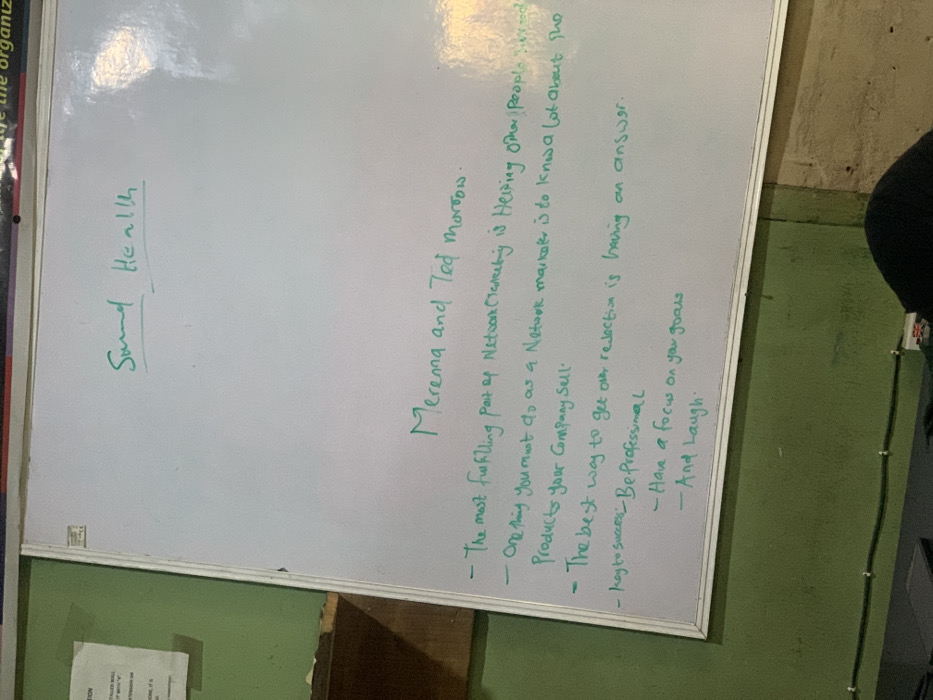 Sound Health
Merenna and Ted Morrow.
- The most fulfilling Part of Network Marketing is Helping Other People
- One thing you must do as a Network marketer is to know a lot about the
Products your Company sell.
- The best way to get over rejection is having an answer.
- Key to success - Be Professional
- Have a focus on your goals
- And Laugh.
the organiz